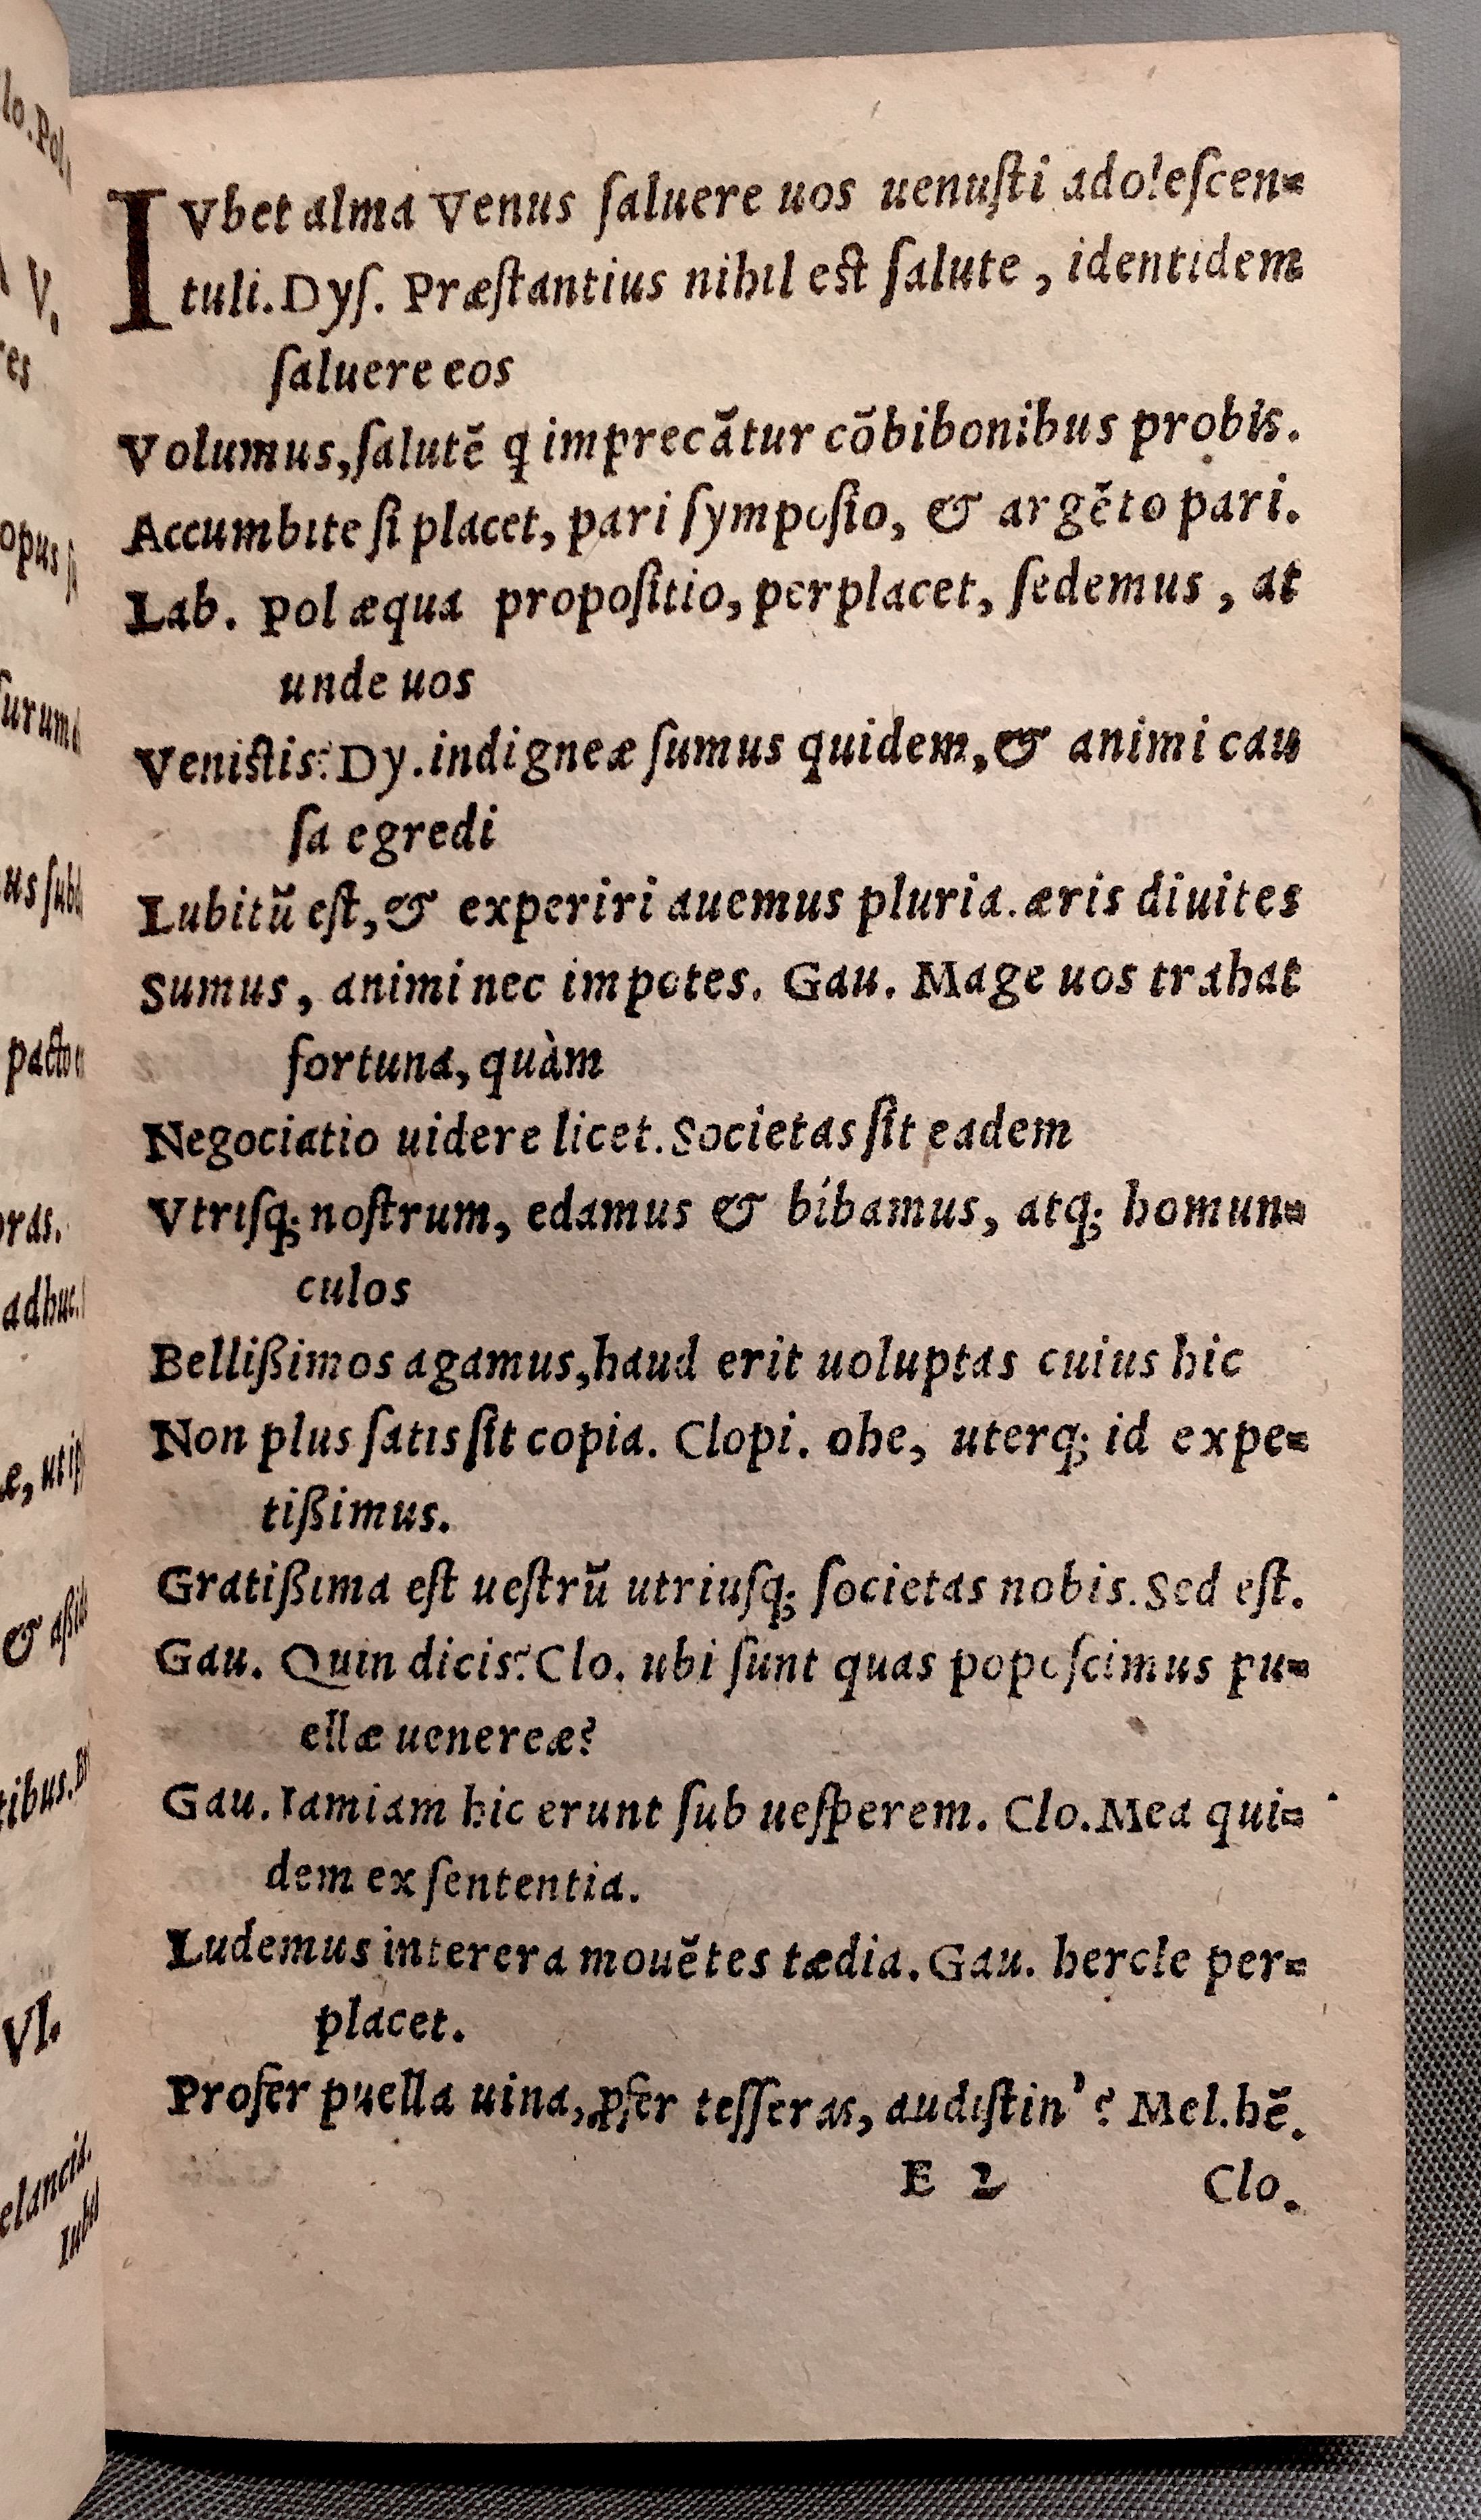 IVbet alma Venus ſaluere uos uenuſti adoleſcen=
tuli. Dyſ. Præſtantius nihil est ſalute, identidem
ſaluere eos
Volumus, ſalutẽ q imprecãtur cõbibonibus probis.
Accumbite ſi placet, pari ſympoſio, & argẽto pari.
Lab. Pol æqua propoſitio, perplacet, ſedemus, at
unde uos
Veniſtis? Dy. indigneæ ſumus quidem, & animi cau
ſa egredi
Lubitũ eſt, & experiri auemus pluria. æris diuites
Sumus, animi nec impotes. Gau. Mage uos trahat
fortuna, quàm
Negociatio uidere licet. Societas ſit eadem
Vtriſq; noſtrum, edamus & bibamus, atq; homun=
culos
Bellißimos agamus, haud erit uoluptas cuius hic
Non plus ſatis ſit copia. Clopi. ohe, uterq; id expe=
tißimus.
Gratißima eſt ueſtrũ utriuſq; ſocietas nobis. Sed eſt.
Gau. Quin dicis? Clo. ubi ſunt quas popoſcimus pu=
ellæ uenereæ?
Gau. Iamiam hic erunt ſub ueſperem. Clo. Mea qui=
dem ex ſententia.
Ludemus interera mouẽtes tædia. Gau. hercle per=
placet.
Profer puella uina, ꝓfer teſſeras, audiſtin'? Mel. hẽ.
E 2 Clo.